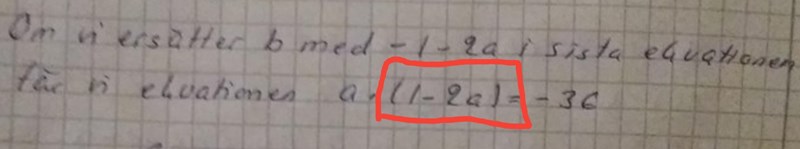 Om vi ersätter b med -1-2a i sista ekvationen
får vi ekvationen a·(1-2a)=-36